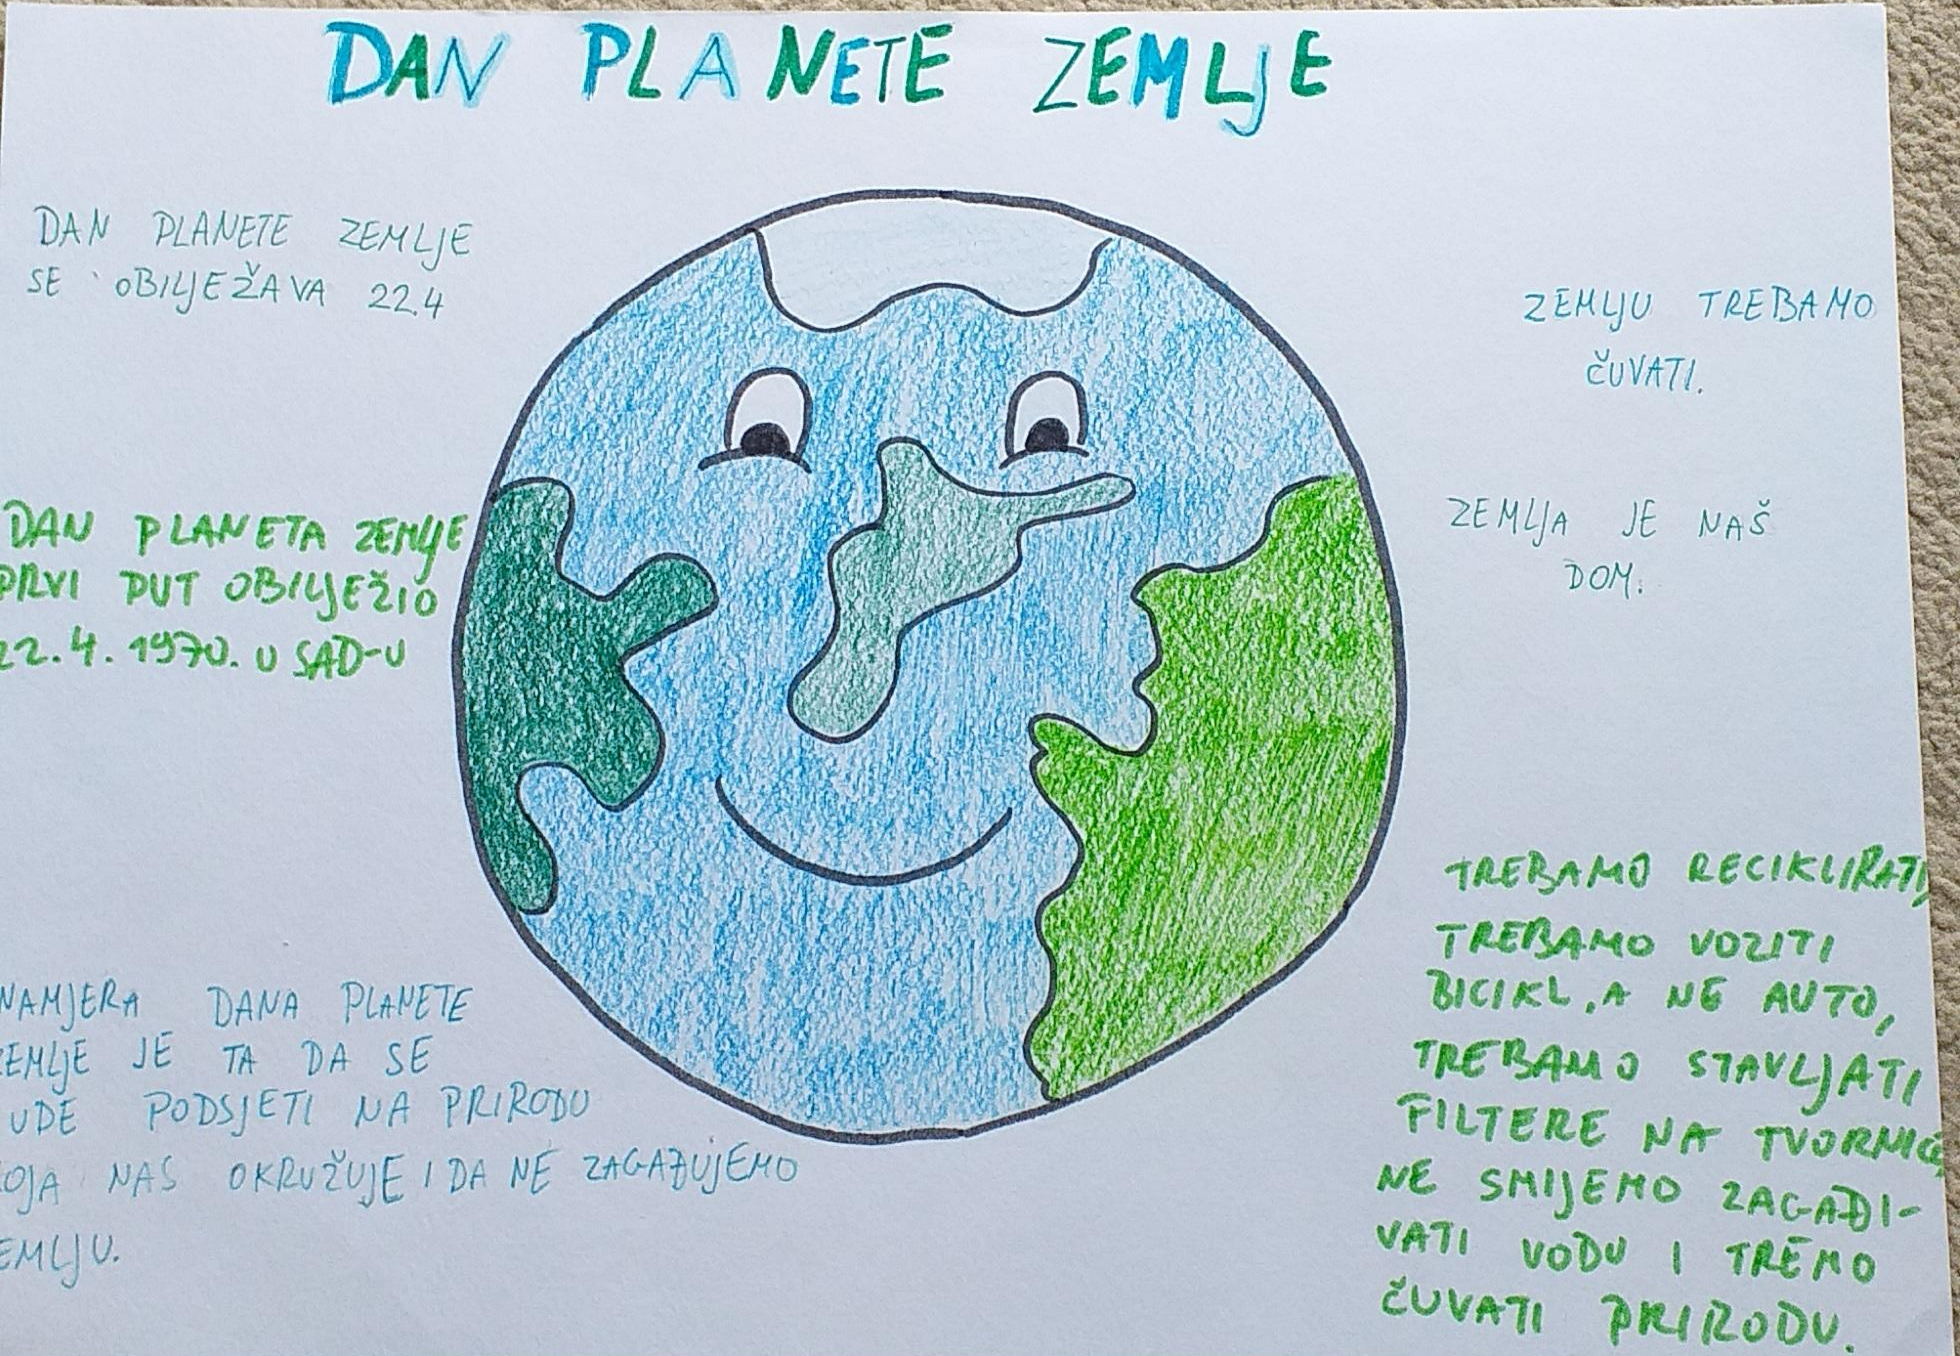 DAN PLANETE ZEMLJE
DAN PLANETE ZEMLJE
SE OBILJEŽAVA 22.4
DAN PLANETA ZEMLJE
PRVI PUT OBILJEŽIO
22.4.1970. U SAD-U
NAMJERA DANA PLANETE
ZEMLJE JE TA DA SE
PODSJETI NA PRIRODU
KOJA NAS OKRUŽUJE I DA NE ZAGAĐUJEMO
ZEMLJU.
ZEMLJU TREBAMO
ČUVATI.
ZEMLJA JE NAŠ
DOM.
TREBAMO RECIKLIRATI,
TREBAMO VOZITI
BICIKL, A NE AUTO,
TREBAMO STAVLJATI
FILTERE NA TVORNICE,
NE SMIJEMO ZAGAĐI-
VATI VODU I TREMO
ČUVATI PRIRODU.